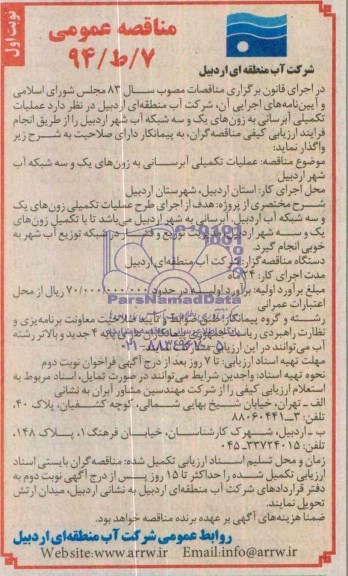 نوبت اول
مناقصه عمومی
۹۴/ط/۷
شرکت آب منطقه ای اردبیل
در اجرای قانون برگزاری مناقصات مصوب سال ۸۳ مجلس شورای اسلامی
و آیین‌نامه‌های اجرایی آن، شرکت آب منطقه‌ای اردبیل در نظر دارد عملیات
تکمیلی آبرسانی به زون‌های یک و سه شبکه آب شهر اردبیل را از طریق انجام
فرایند ارزیابی کیفی مناقصه‌گران، به پیمانکار دارای صلاحیت به شرح زیر
واگذار نماید:
موضوع مناقصه: عملیات تکمیلی آبرسانی به زون‌های یک و سه شبکه آب
شهر اردبیل
محل اجرای کار: استان اردبیل، شهرستان اردبیل
شرح مختصری از پروژه: هدف از اجرای طرح عملیات تکمیلی زون‌های یک
و سه شبکه آب اردبیل، آبرسانی به شهر اردبیل می‌باشد تا با تکمیل زون‌های
یک و سه شهر اردبیل، مدیریت توزیع و فشار در شبکه توزیع آب شهر به
خوبی انجام گیرد.
دستگاه مناقصه‌گزار: شرکت آب منطقه‌ای اردبیل
مدت اجرای کار: ۲۴ ماه
مبلغ برآورد اولیه: برآورد اولیه در حدود ۷۰/۰۰۰/۰۰۰/۰۰۰ ریال از محل
اعتبارات عمرانی
ParsNamadData
رشته و گروه پیمانکار: معاونت برنامه‌ریزی و
نظارت راهبردی پایه ۴ جدید و بالاتر رشته
آب می‌توانند در این ارزیابی
۰۲۱-۸۸۳۴۹۶۷۰-۵
مهلت تهیه اسناد ارزیابی: تا ۷ روز بعد از درج آگهی فراخوان نوبت دوم
نحوه تهیه اسناد: واجدین شرایط می‌توانند در صورت تمایل، اسناد مربوط به
استعلام ارزیابی کیفی را از شرکت مهندسین مشاور ایران به نشانی
الف ـ تهران، خیابان شیخ بهایی شمالی، کوچه کشفیان، پلاک ۴۰،
تلفن: ۳ـ۸۸۰۶۰۴۴۱
ب ـ اردبیل، شهرک کارشناسان، خیابان فرهنگ۱، پلاک ۱۴۸،
تلفن: ۳۳۷۲۴۰۱۵ـ۰۴۵
زمان و محل تسلیم اسناد ارزیابی تکمیل شده: مناقصه‌گران بایستی اسناد
ارزیابی تکمیل شده را حداکثر تا ۱۵ روز پس از درج آگهی نوبت دوم به
دفتر قراردادهای شرکت آب منطقه‌ای اردبیل به نشانی اردبیل، میدان ارتش
تحویل نمایند.
ضمنا هزینه‌های آگهی بر عهده برنده مناقصه خواهد بود.
روابط عمومی شرکت آب منطقه‌ای اردبیل
Website:www.arrw.ir Email:info@arrw.ir